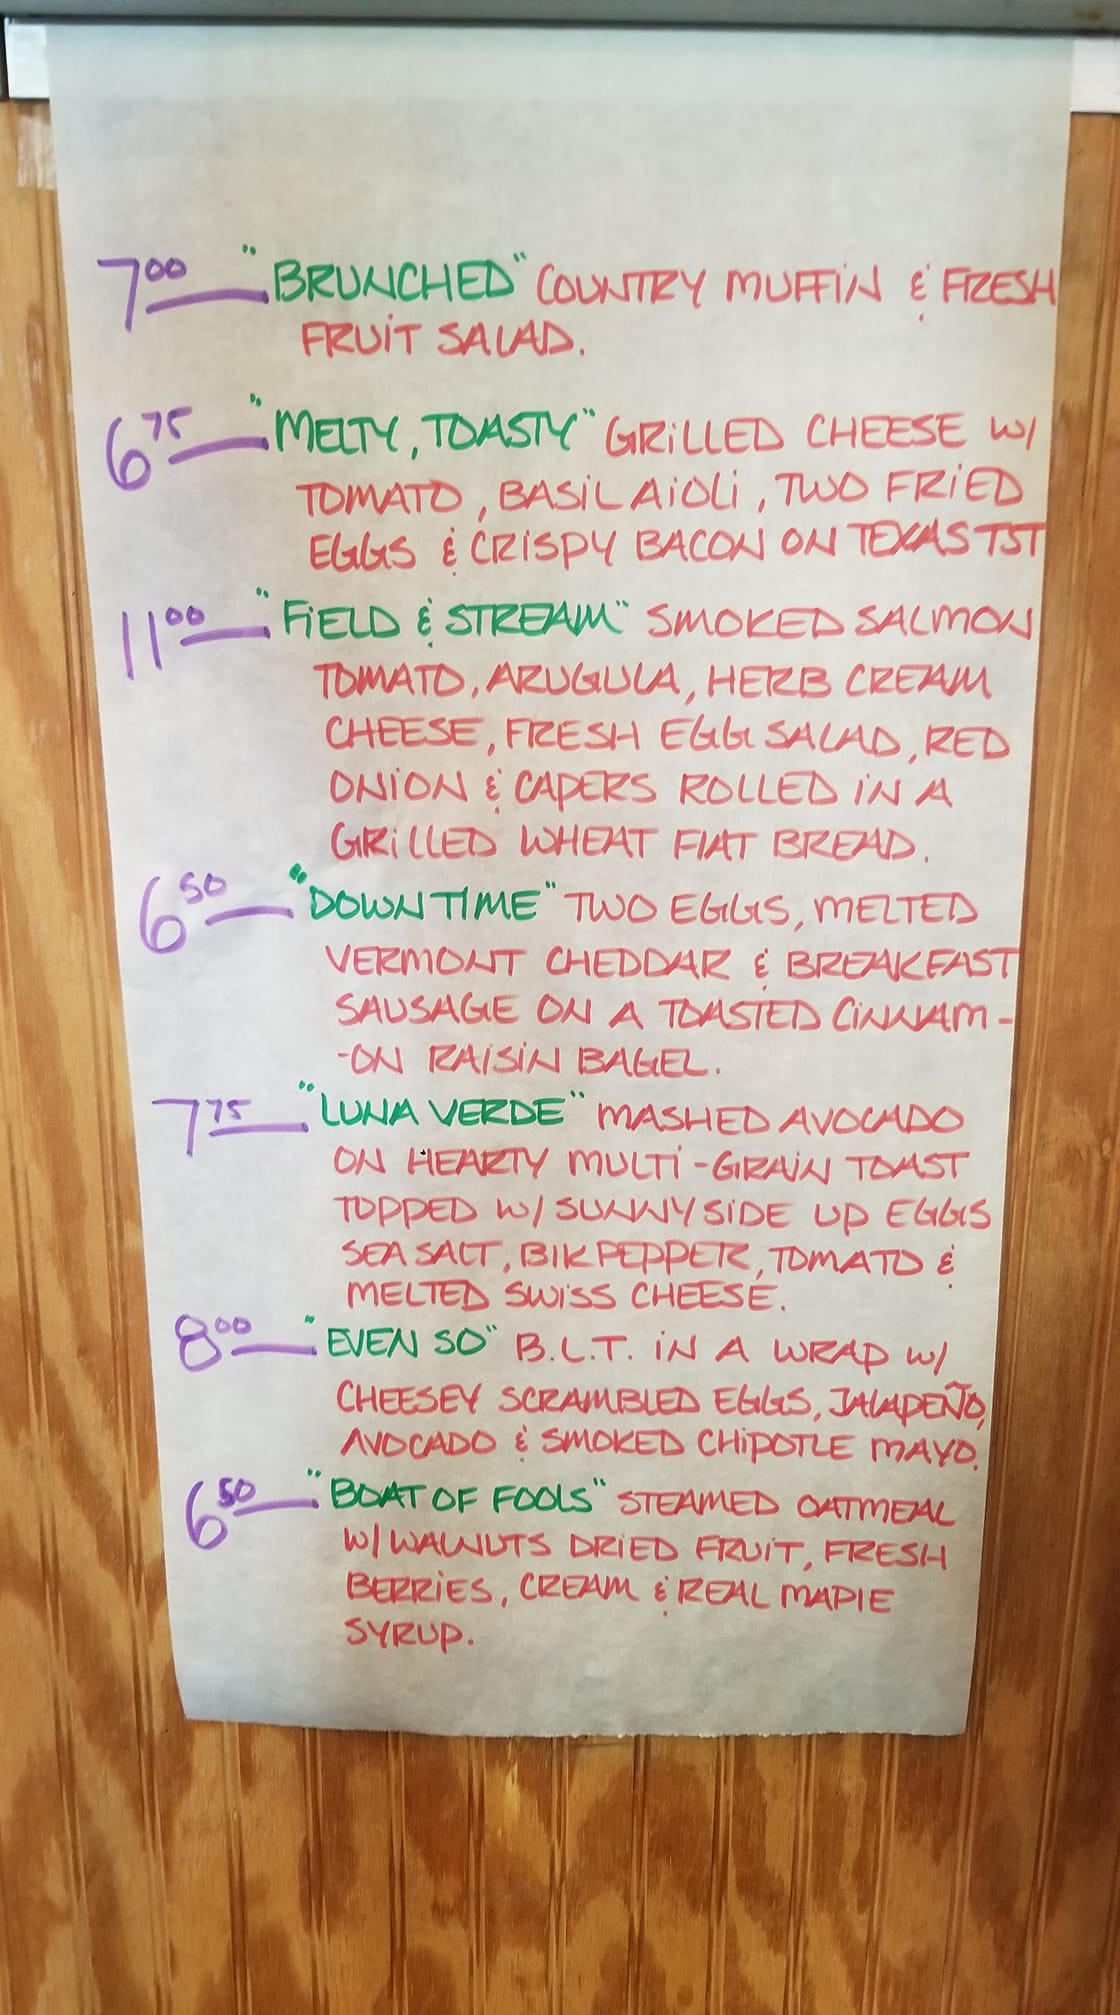 7⁰⁰ — "BRUNCHED" COUNTRY MUFFIN & FRESH
FRUIT SALAD.
6⁷⁵ — "MELTY, TOASTY" GRILLED CHEESE W/
TOMATO, BASIL AIOLI, TWO FRIED
EGGS & CRISPY BACON ON TEXAS TST
11⁰⁰ — "FIELD & STREAM" SMOKED SALMON
TOMATO, ARUGULA, HERB CREAM
CHEESE, FRESH EGG SALAD, RED
ONION & CAPERS ROLLED IN A
GRILLED WHEAT FLAT BREAD.
6⁵⁰ — "DOWN TIME" TWO EGGS, MELTED
VERMONT CHEDDAR & BREAKFAST
SAUSAGE ON A TOASTED CINNAM-
-ON RAISIN BAGEL.
7⁷⁵ — "LUNA VERDE" MASHED AVOCADO
ON HEARTY MULTI-GRAIN TOAST
TOPPED W/ SUNNYSIDE UP EGGS
SEA SALT, BLK PEPPER, TOMATO &
MELTED SWISS CHEESE.
8⁰⁰ — "EVEN SO" B.L.T. IN A WRAP W/
CHEESEY SCRAMBLED EGGS, JALAPEÑO,
AVOCADO & SMOKED CHIPOTLE MAYO.
6⁵⁰ — "BOAT OF FOOLS" STEAMED OATMEAL
W/ WALNUTS DRIED FRUIT, FRESH
BERRIES, CREAM & REAL MAPLE
SYRUP.